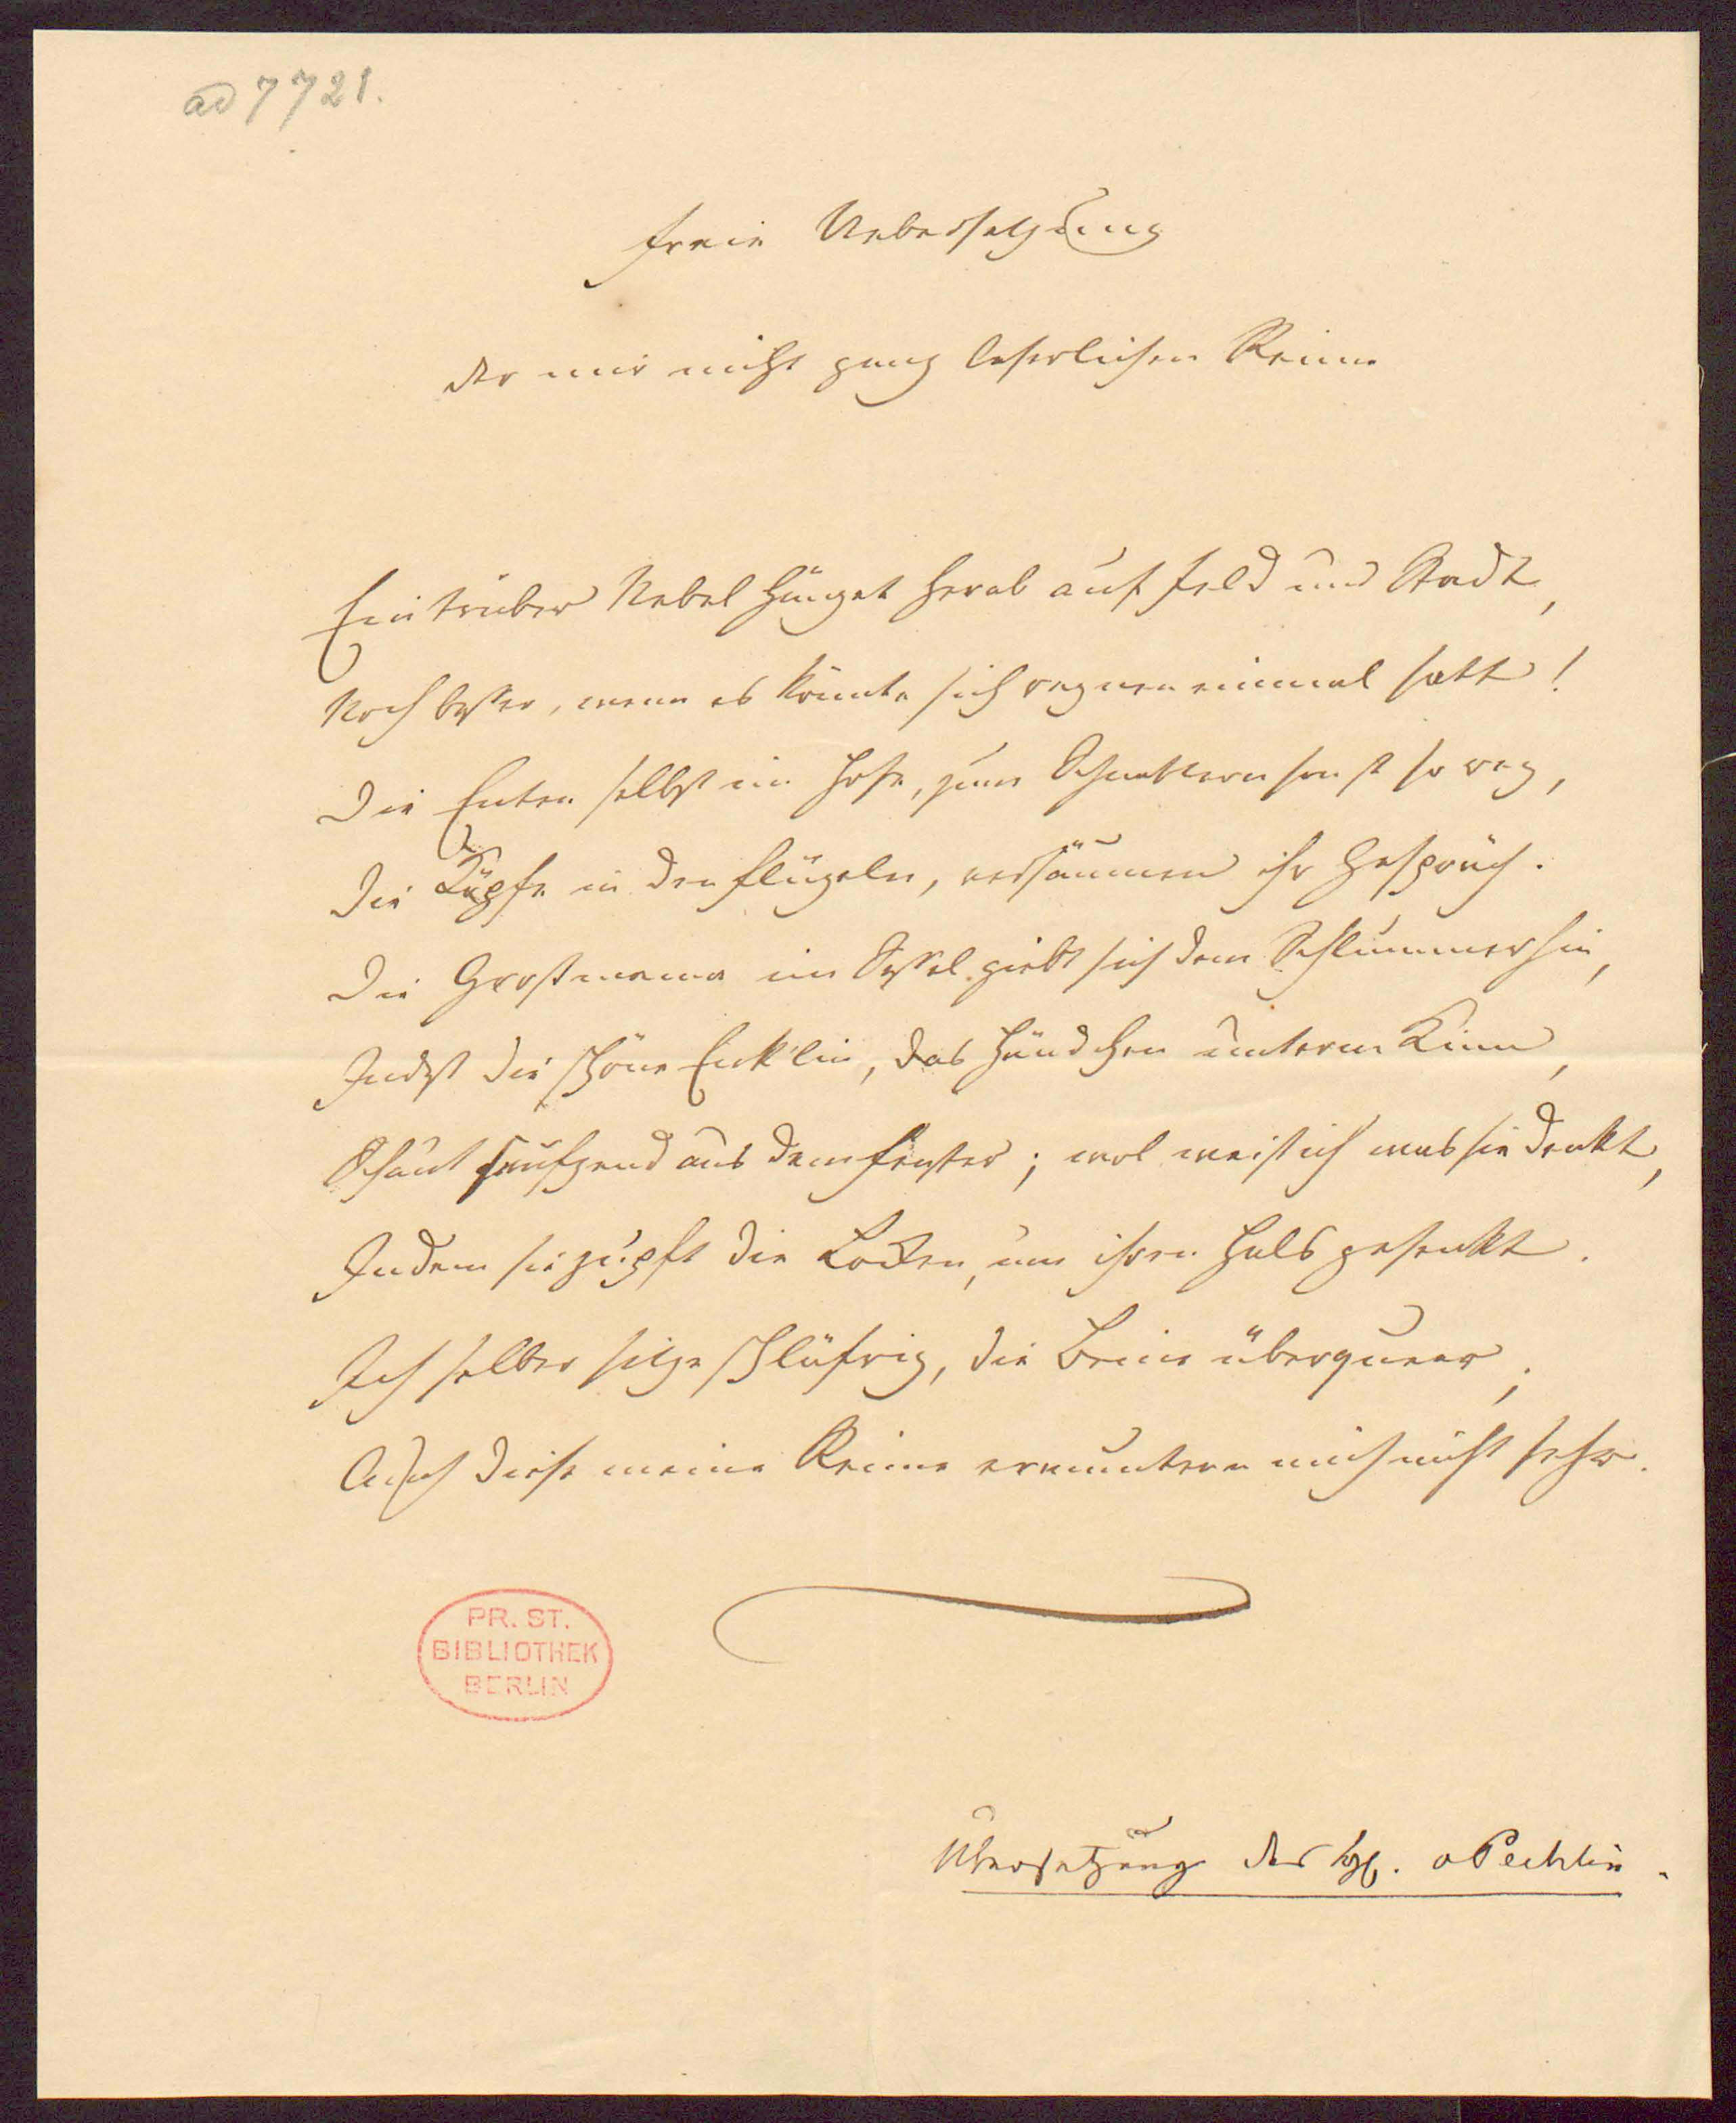 ad 7721.
Freie Uebersetzung
der mir nicht ganz leserlichen Reime
Ein trüber Nebel hänget herab auf Feld und Stadt,
Noch besser, wenn es könnte sich regnen einmal satt!
Die Enten selbst im Hofe, zum Schnattern sonst so reg,
Die Köpfe in den Flügeln, versäumen ihr Gespräch.
Die Großmama im Sessel giebt sich dem Schlummer hin,
Indeß die schöne Enk'lin, das Händchen unterm Kinn,
Schaut seufzend aus dem Fenster; wol weiß ich was sie denkt,
Indem sie zupft die Locken, um ihren Hals gesenkt.
Ich selber sitze schläfrig, die Beine überqueer;
Auch diese meine Reime ermuntern mich nicht sehr.
PR. ST.
BIBLIOTHEK
BERLIN
Übersetzung des v Pechlin.